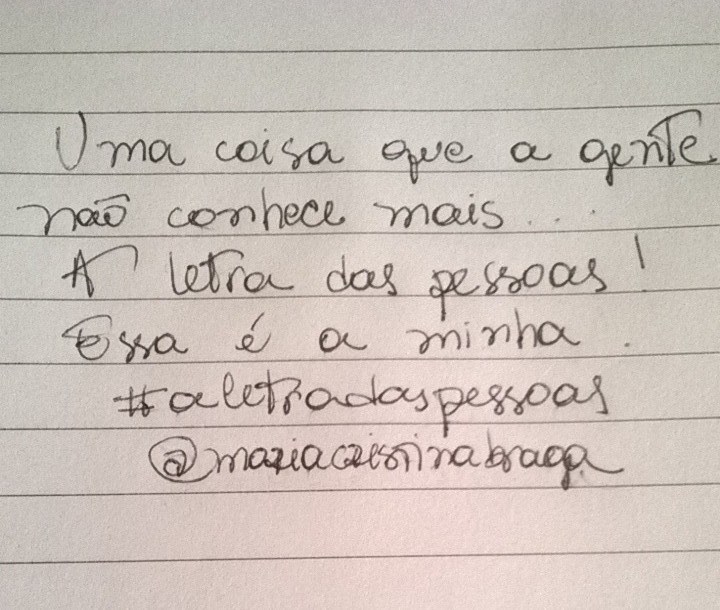 Uma coisa que a gente
não conhece mais...
A letra das pessoas!
Essa é a minha.
#aletradaspessoas
@mariacristinabraga